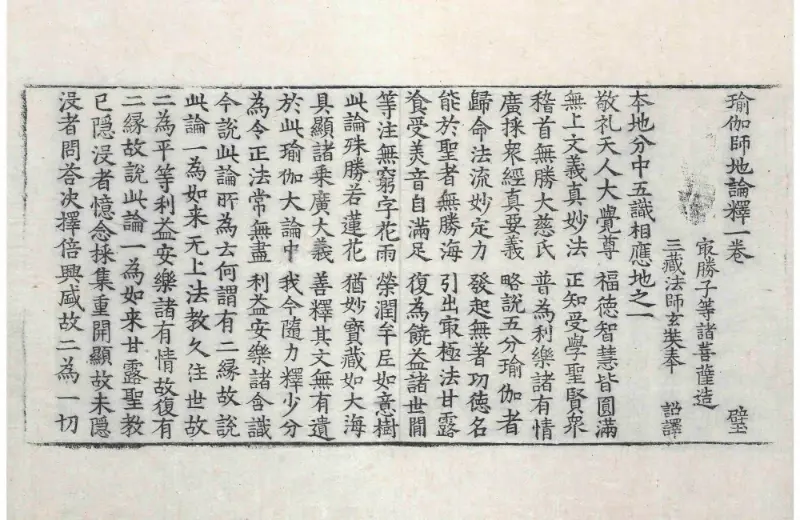 瑜伽師地論釋一卷 璧
㝡勝子等諸菩薩造
三藏法師玄奘奉 詔譯
本地分中五識相應地之一
敬礼天人大覺尊 福德智慧皆圓滿
無上文義真妙法 正知受學聖賢衆
稽首無勝大慈氏 普為利樂諸有情
廣採衆經真要義 略說五分瑜伽者
歸命法流妙定力 發起無著功德名
能於聖者無勝海 引出㝡極法甘露
飡受美音自滿足 復為饒益諸世間
等注無窮字花雨 榮潤牟尼如意樹
此論殊勝若蓮花 猶妙寶藏如大海
具顯諸乘廣大義 善釋其文無有遺
於此瑜伽大論中 我今隨力釋少分
為令正法常無盡 利益安樂諸含識
今說此論所為云何謂有二緣故說
此論一為如来无上法教久住世故
二為平等利益安樂諸有情故復有
二緣故說此論一為如来甘露聖教
已隱没者憶念採集重開顯故未隱
没者問荅决擇倍興盛故二為一切